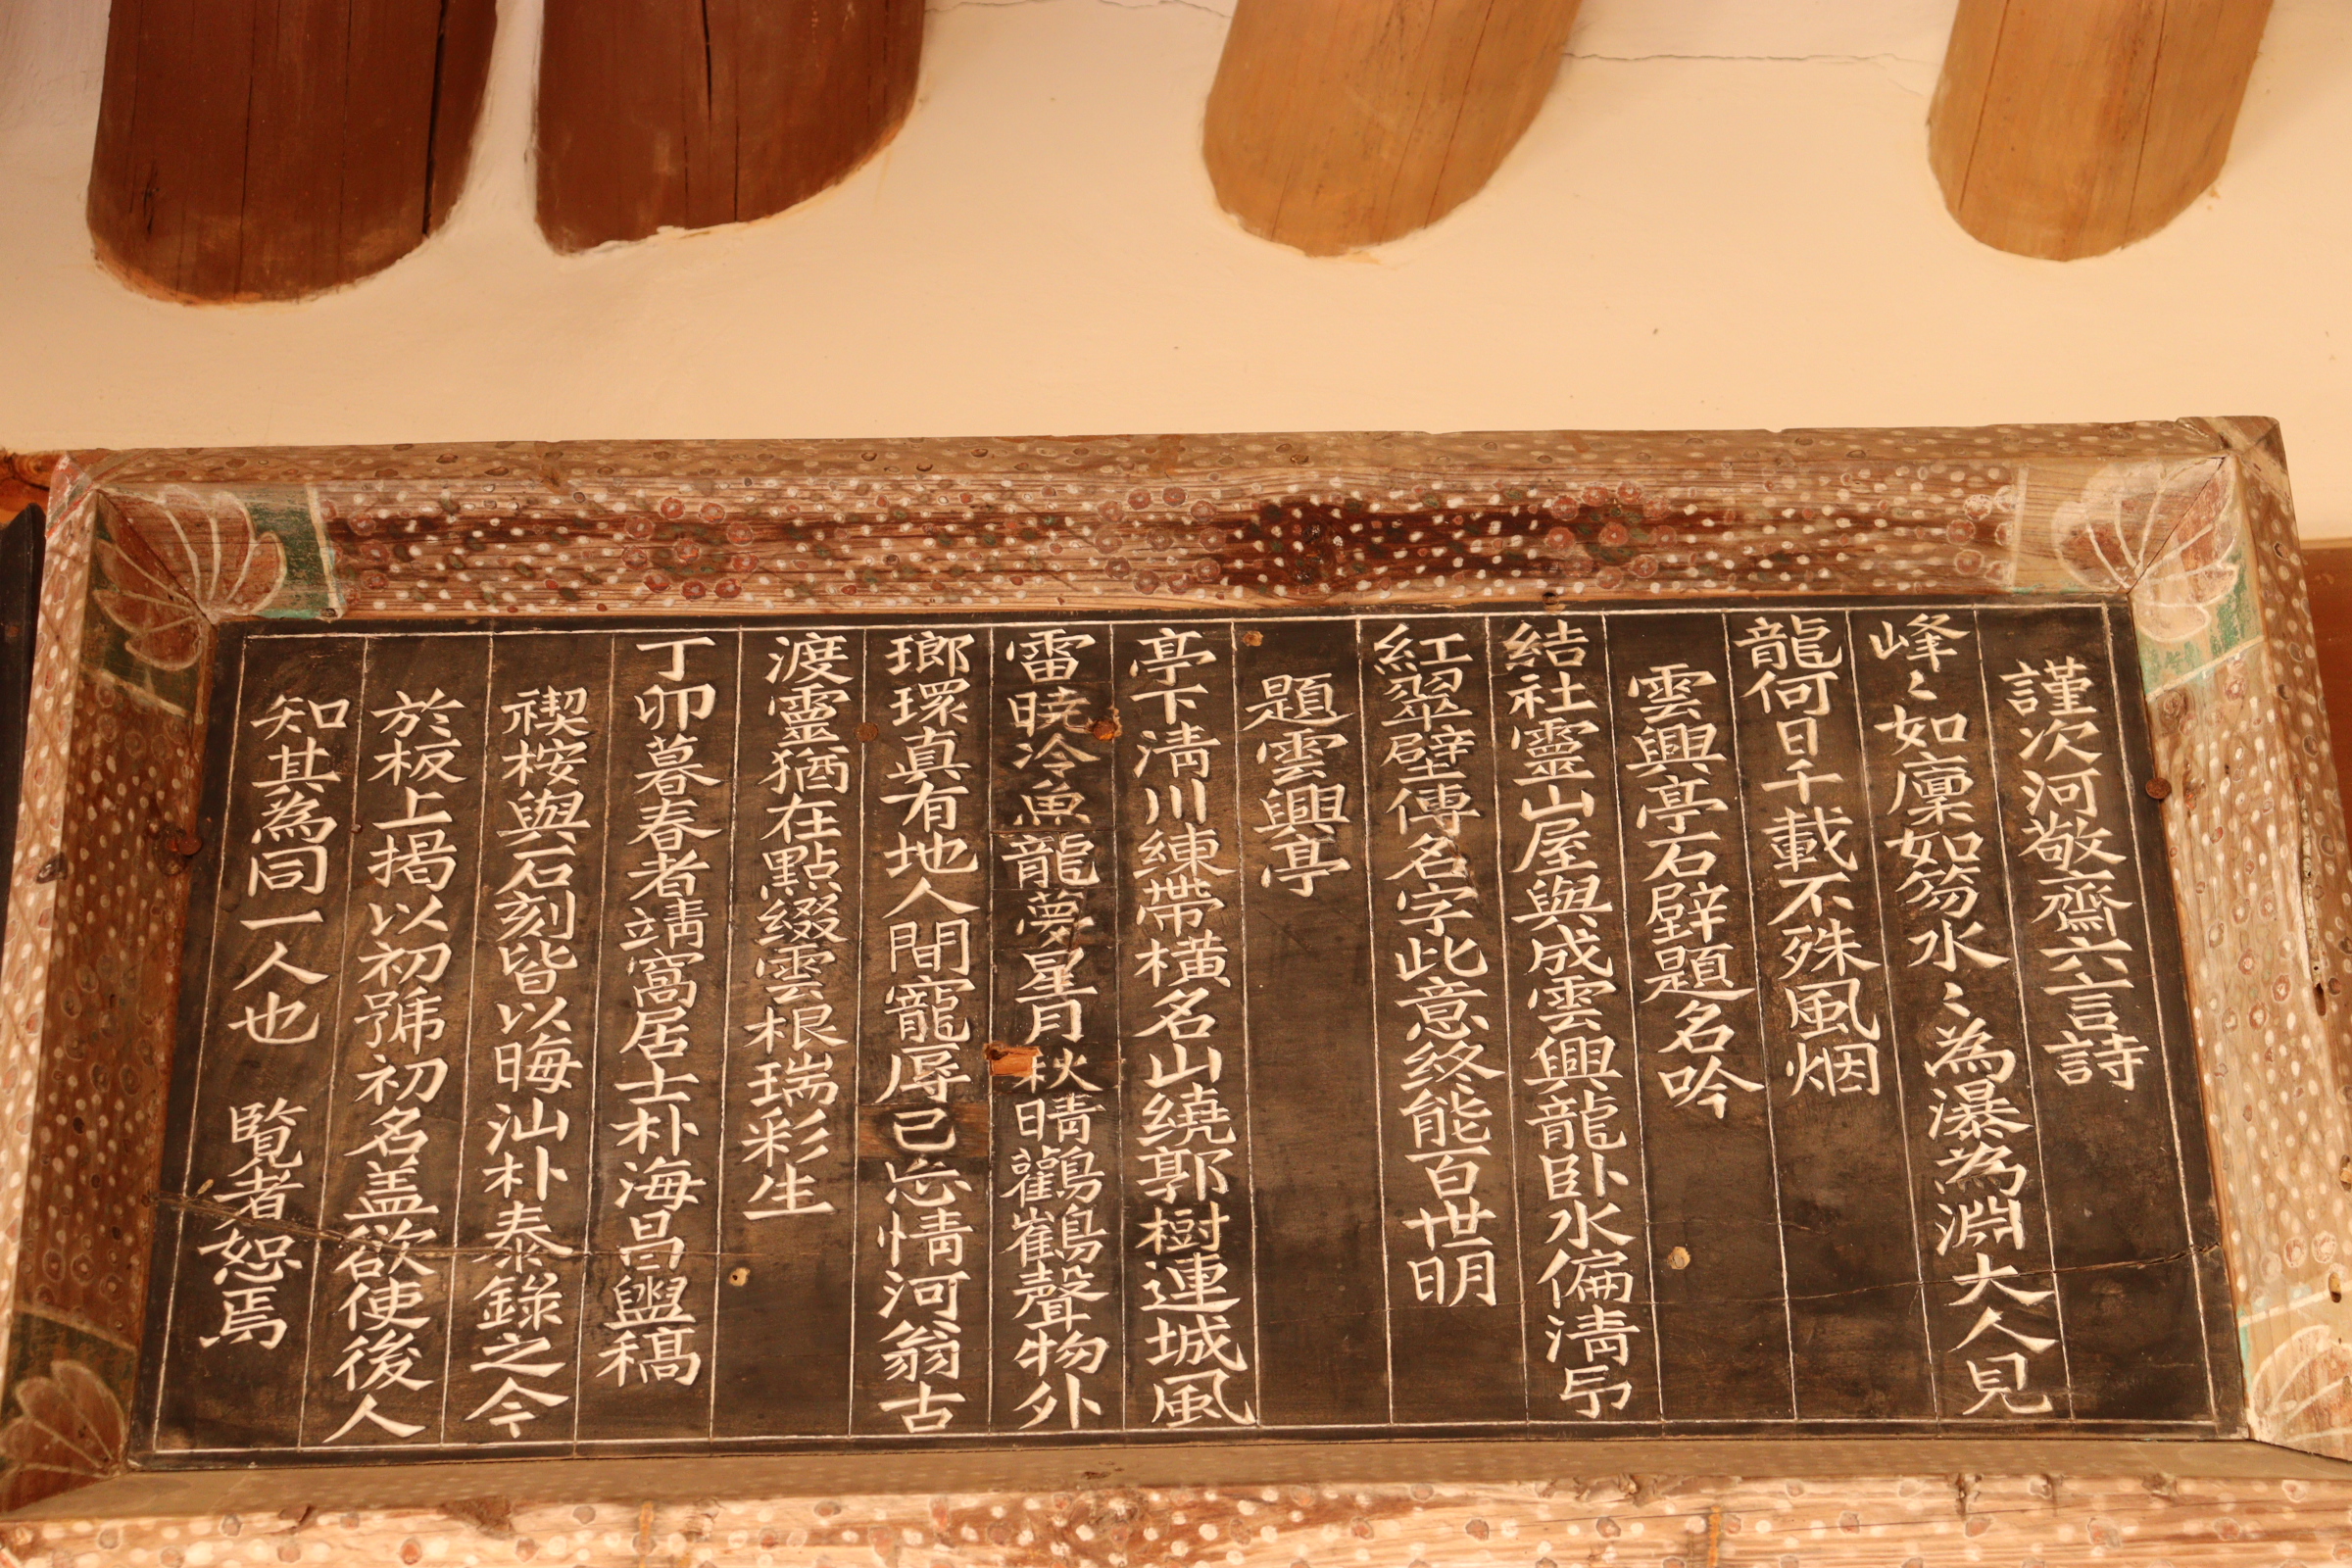 謹次河敬齋六言詩
峰〻如廩如笏水〻為瀑為淵大人見
龍何日千載不殊風烟
雲興亭石壁題名吟
結社靈山屋與成雲興龍臥水偏淸
紅翠壁傳名字此意終能百世明
題雲興亭
亭下淸川練帶橫名山繞郭樹連城風
雷曉冷魚龍夢星月秋晴鸛鶴聲物外
瑯環真有地人間寵辱已忘情河翁古
渡靈猶在點綴雲根瑞彩生
丁卯暮春者靖窩居士朴海昌盥稿
禊桉與石刻皆以晦汕朴泰錄之今
於板上揭以初號初名盖欲使後人
知其為同一人也 覧者恕焉